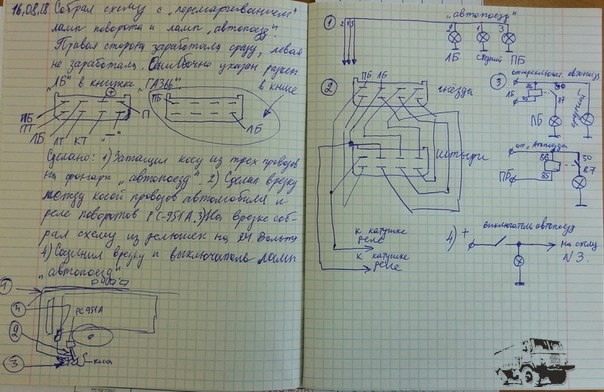 16.08.18 Собрал схему с "перемаргиванием"
ламп поворота и ламп "автопоезд".
Правая сторона заработала сразу, левая
не заработала. Ошибочно указан разъем
"ЛБ" в книжке "ГАЗ66"
в книге
ПБ
ПТ
ЛБ
ЛТ
КТ
"-"
П
ПБ
ЛБ
Сделано: 1) Затащил косу из трех проводов
на фонари "автопоезд". 2) Сделал врезку
между косой проводов автомобиля и
реле поворотов РС-951А. 3) На врезке соб-
рал схему из релюшек на 24 Вольта
4) Соединил врезку и выключатель ламп
"автопоезд"
1
4
2
3
РС951А
коса
1
"автопоезд"
1 2 3
2
1
3
ЛБ
средний
ПБ
2
ПБ ЛБ
гнёзда
штыри
к катушке
реле
к катушке
реле
3
ЛБ
85
30
87
ЛБ
ПБ
86
85
30
87
4) +
выключатель автопоезд
на схему
N 3.